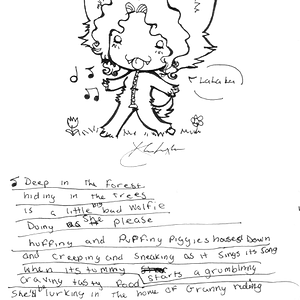 La La La
Deep in the Forest
hiding in the trees
is a little big bad Wolfie
Doing as She please
huffing and Puffing Piggies houses Down
and Creeping and Sneaking as it Sings its Song
When its tummy starts a grumbinng
Craving tasty Food
She's lurking in the home of Granny